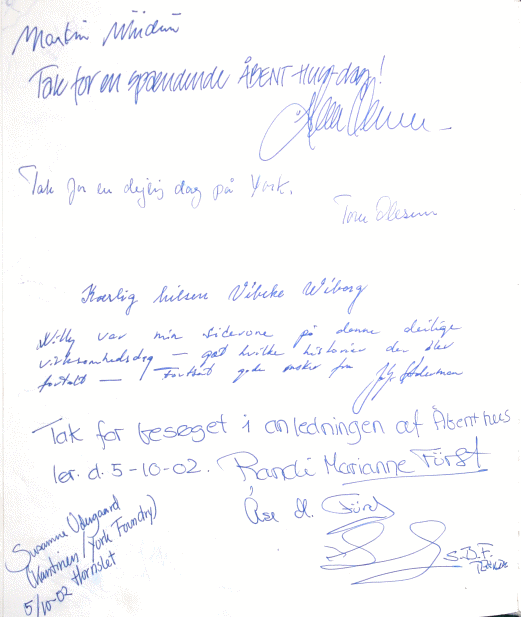 Martin
Tak for en spændende ÅBENT-HUS-dag!
Tak for en dejlig dag på York.
Tom Olesen
Kærlig hilsen Vibeke Wiborg
Willy var min sidevone på denne dejlige
virksomhedsdag – gad hvilke historier der blev
fortalt – Fortsat gode ønsker fra
Tak for besøget i anledningen af Åbent hus
lør. d. 5-10-02. Randi Marianne Fürst
Åse M. Fürst
S.B.F.
Susanne Odergaard
(Kantinen / York Foundry)
5/10-02 Hornslet